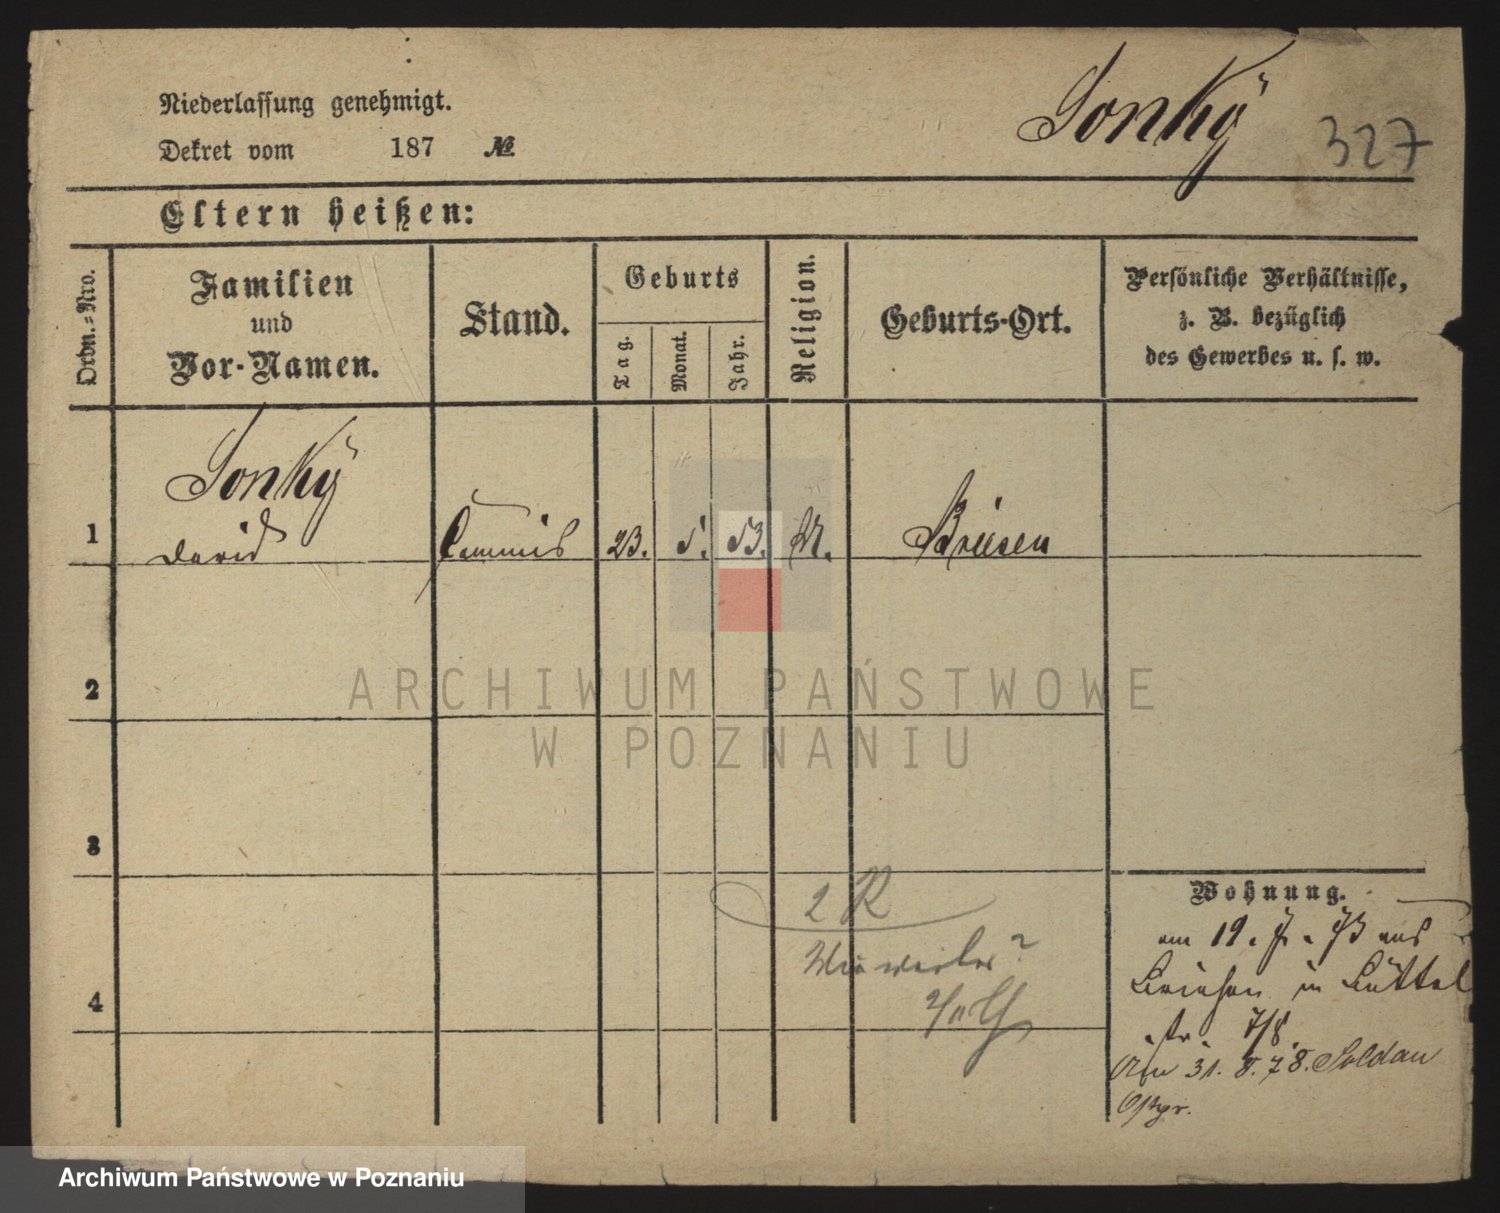 Niederlassung genehmigt.
Dekret vom 187 №
Sonky
327
Eltern heißen:
Ordn.-Nro.
Familien
und
Vor-Namen.
Stand.
Geburts
Tag.
Monat.
Jahr.
Religion.
Geburts-Ort.
Persönliche Verhältnisse,
z. B. bezüglich
des Gewerbes u. s. w.
1
Sonky
David
Commis
23. 5. 53. M.
Briesen
2
ARCHIWUM PAŃSTWOWE
W POZNANIU
3
2 R
4
Wohnung.
am 19. 7. 73 aus
in Büttel
str. 7/8.
Am 31. 8. 78. Soldau
Archiwum Państwowe w Poznaniu